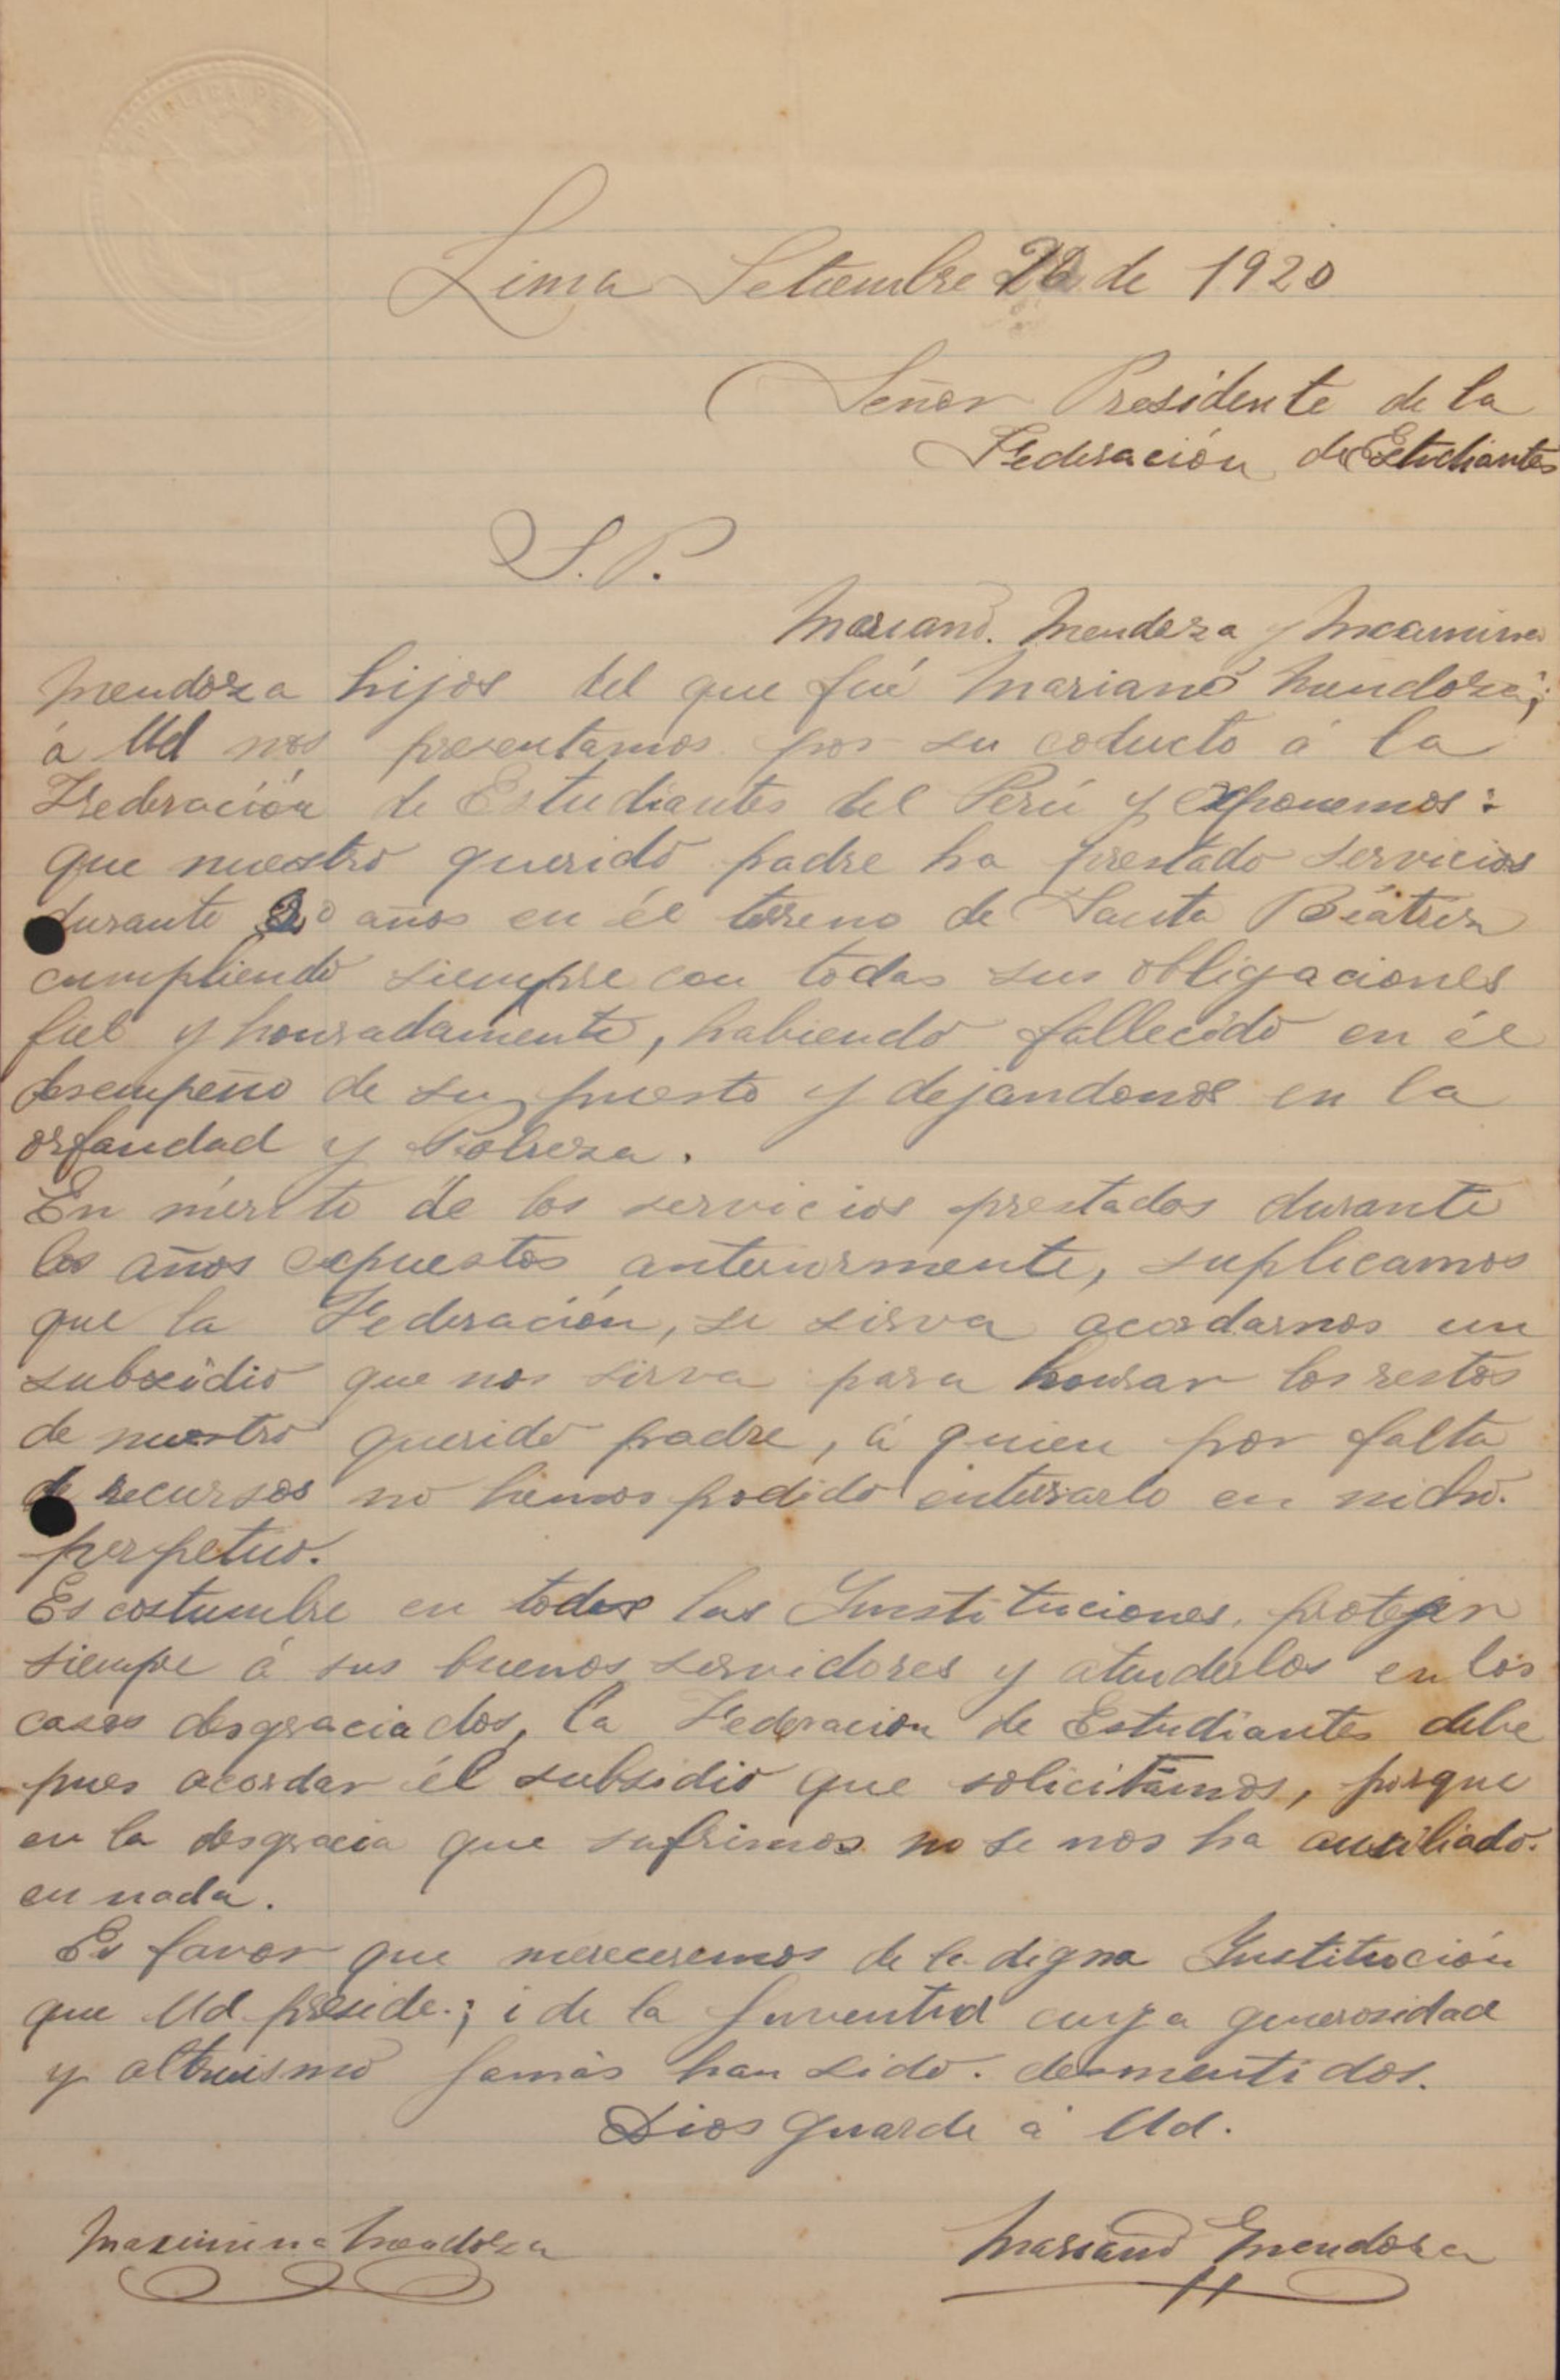 Lima Setiembre de 1920
Señor Presidente de la
Federación de Estudiantes
S. P.
Mariano. Mendoza y Maximina
Mendoza hijos del que fué Mariano Mendoza;
á Ud nos presentamos por su coducto á la
Federación de Estudiantes del Perú y exponemos:
que nuestro querido padre ha prestado servicios
durante 20 años en él terreno de Santa Beatriz
cumpliendo siempre con todas sus obligaciones
fiel y honradamente, habiendo fallecido en él
desempeño de su puesto y dejandonos en la
orfandad y Pobreza.
En mérito de los servicios prestados durante
los años expuestos anteriormente, suplicamos
que la Federación, se sirva acordarnos un
subsidio que nos sirva para honrar los restos
de nuestro querido padre, á quien por falta
de recursos no hemos podido enterrarlo en nicho.
perpetuo.
Es costumbre en todas las Instituciones, protejer
siempre á sus buenos servidores y atenderlos en los
casos desgraciados, la Federacion de Estudiantes debe
pues acordar él subsidio que solicitamos, porque
en la desgracia que sufrimos no se nos ha auxiliado.
en nada.
Es favor que mereceremos de la digna Institución
que Ud preside.; i de la Juventud cuya generosidad
y altruismo Jamás han sido. desmentidos.
Dios guarde á Ud.
Maximina Mendoza
Mariano Mendoza